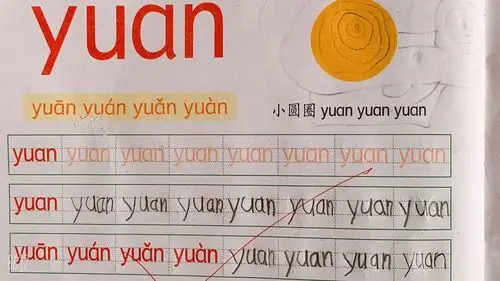 yuan
yuān yuán yuǎn yuàn
小圆圈 yuan yuan yuan
yuan yuan yuan yuan yuan yuan yuan yuan
yuan yuan yuan yuan yuan yuan yuan yuan
yuān yuán yuǎn yuàn yuan yuan yuan yuan